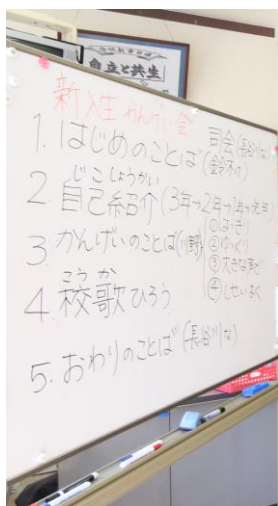 自立と共生
新入生 かんげい会
司会(長谷川な)
1. はじめのことば(鈴木り)
じこしょうかい
2. 自己紹介(3年→2年→1年→先生)
①はっき
②ゆっくり
③大きな声で
④しせいよく
3 かんげいのことば(川野)
こうか
4. 校歌ひろう
5. おわりのことば(長谷川な)